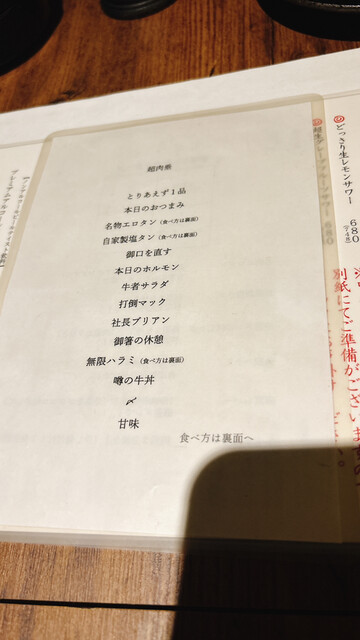 超肉乗
とりあえず1品
本日のおつまみ
名物エロタン（食べ方は裏面）
自家製塩タン（食べ方は裏面）
御口を直す
本日のホルモン
牛者サラダ
打倒マック
社長ブリアン
御箸の休憩
無限ハラミ（食べ方は裏面）
噂の牛丼
〆
甘味
食べ方は裏面へ
どっきり生レモンサワー
680
別紙にてご準備がございます